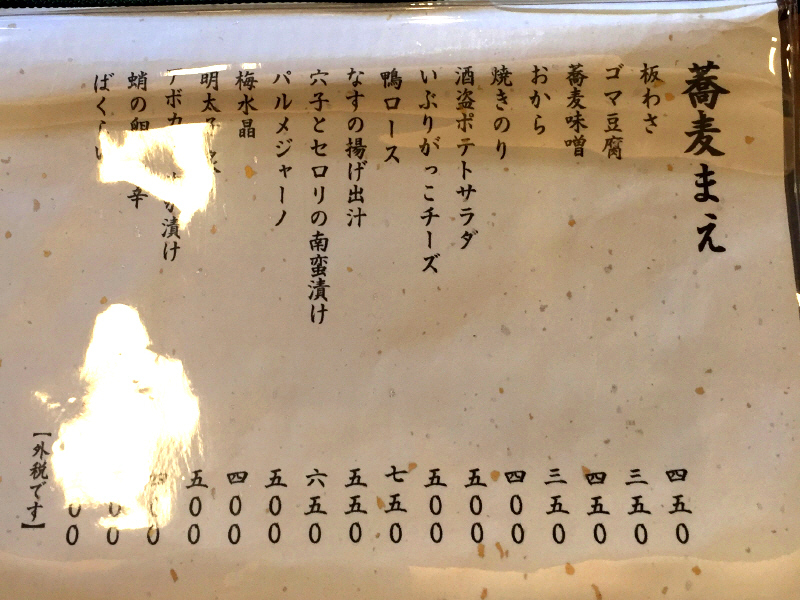 蕎麦まえ
板わさ
ゴマ豆腐
蕎麦味噌
おから
焼きのり
酒盗ポテトサラダ
いぶりがっこチーズ
鴨ロース
なすの揚げ出汁
穴子とセロリの南蛮漬け
パルメジャーノ
梅水晶
明太子
アボカ 漬け
蛸の卵 辛
ばくらい
四五〇
三五〇
四五〇
三五〇
四〇〇
五〇〇
五〇〇
七五〇
五五〇
六五〇
五〇〇
四〇〇
五〇〇
〇〇
〇
〇〇
【外税です】